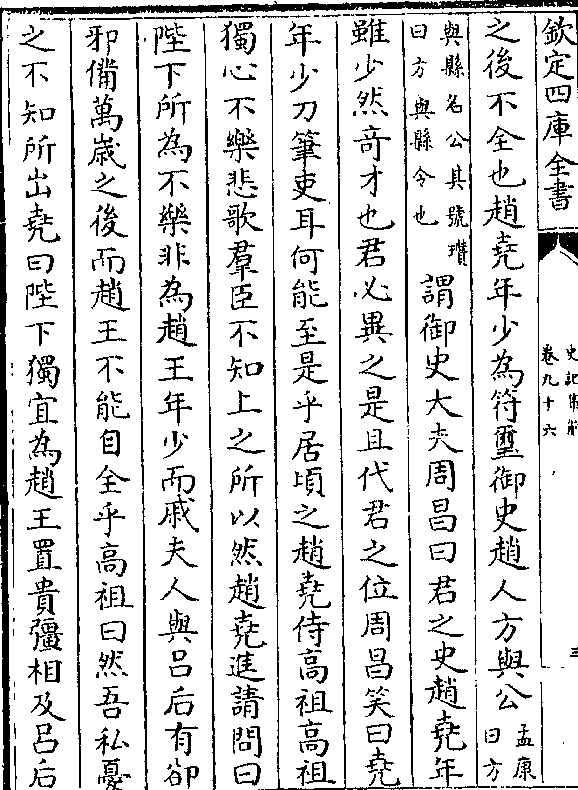 欽定四庫全書
史記集解
卷九十六
三
之後不全也趙堯年少為符璽御史趙人方與公孟康曰方
與縣名公其號瓚曰方與縣令也謂御史大夫周昌曰君之史趙堯年
雖少然竒才也君必異之是且代君之位周昌笑曰堯
年少刀筆吏耳何能至是乎居頃之趙堯侍高祖高祖
獨心不樂悲歌羣臣不知上之所以然趙堯進請問曰
陛下所為不樂非為趙王年少而戚夫人與吕后有郤
邪備萬歲之後而趙王不能自全乎高祖曰然吾私憂
之不知所出堯曰陛下獨宜為趙王置貴彊相及吕后